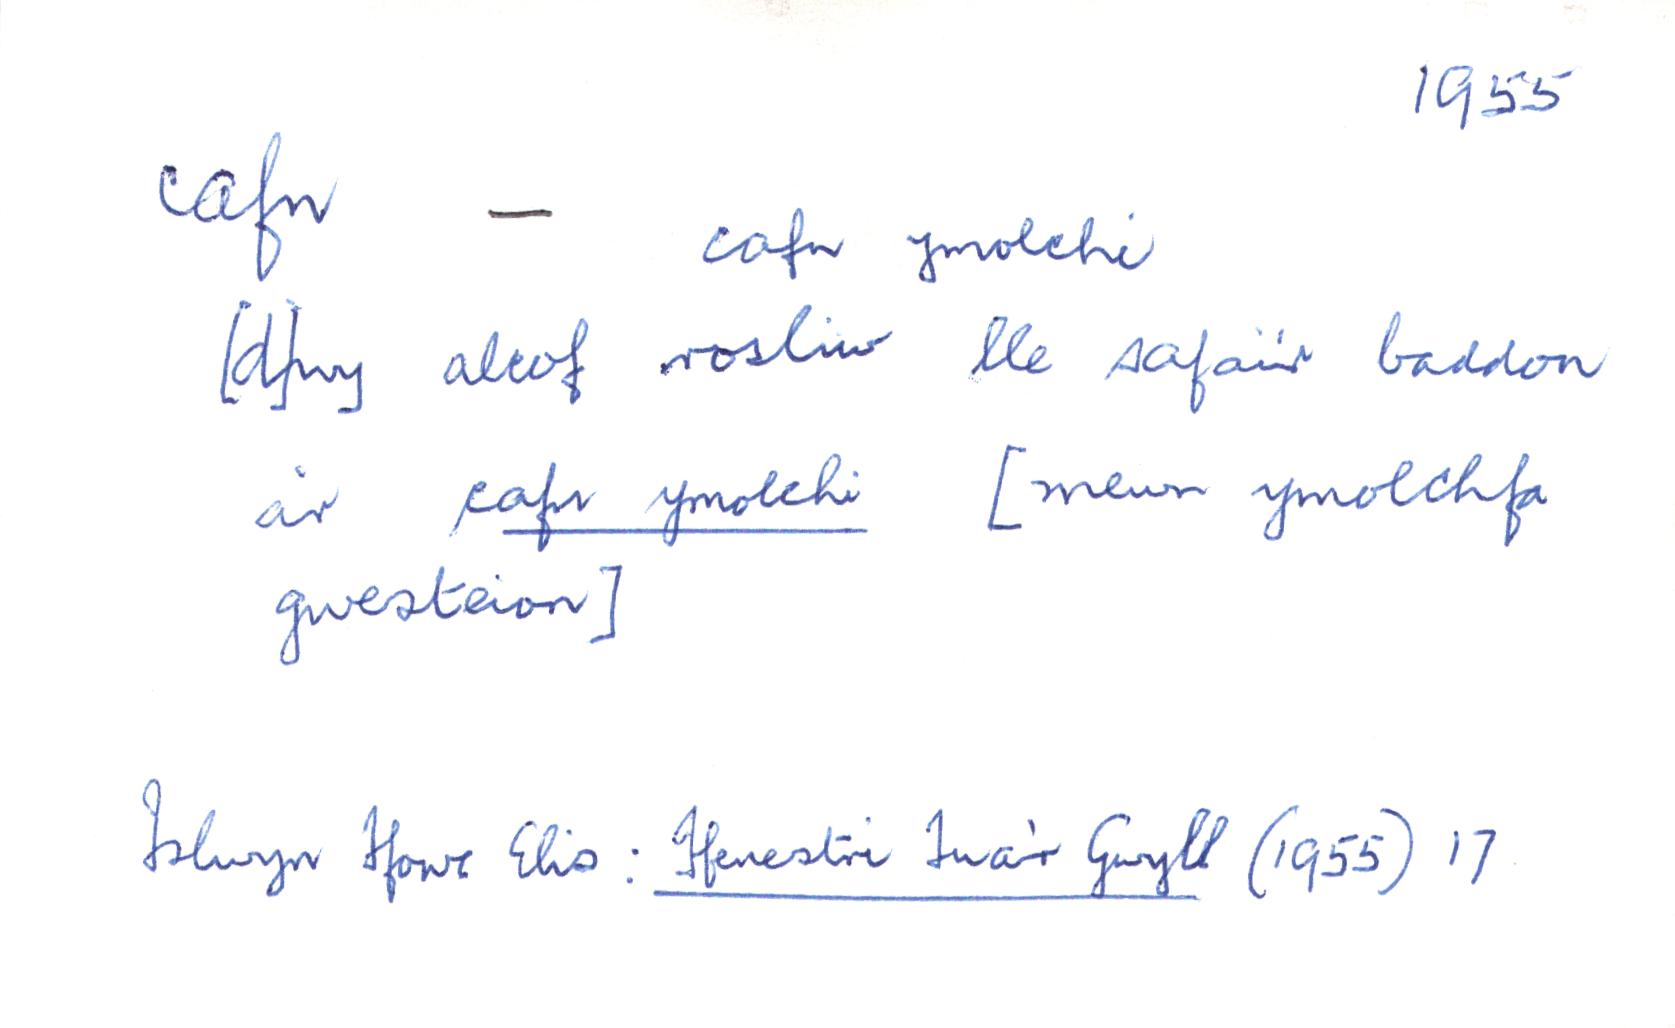 1955
cafn —
cafn ymolchi
[d]wy alcof rosliw lle safai'r baddon
a'r cafn ymolchi [mewn ymolchfa
gwesteion]
Islwyn Ffowc Elis: Ffenestri Tua'r Gwyll (1955) 17